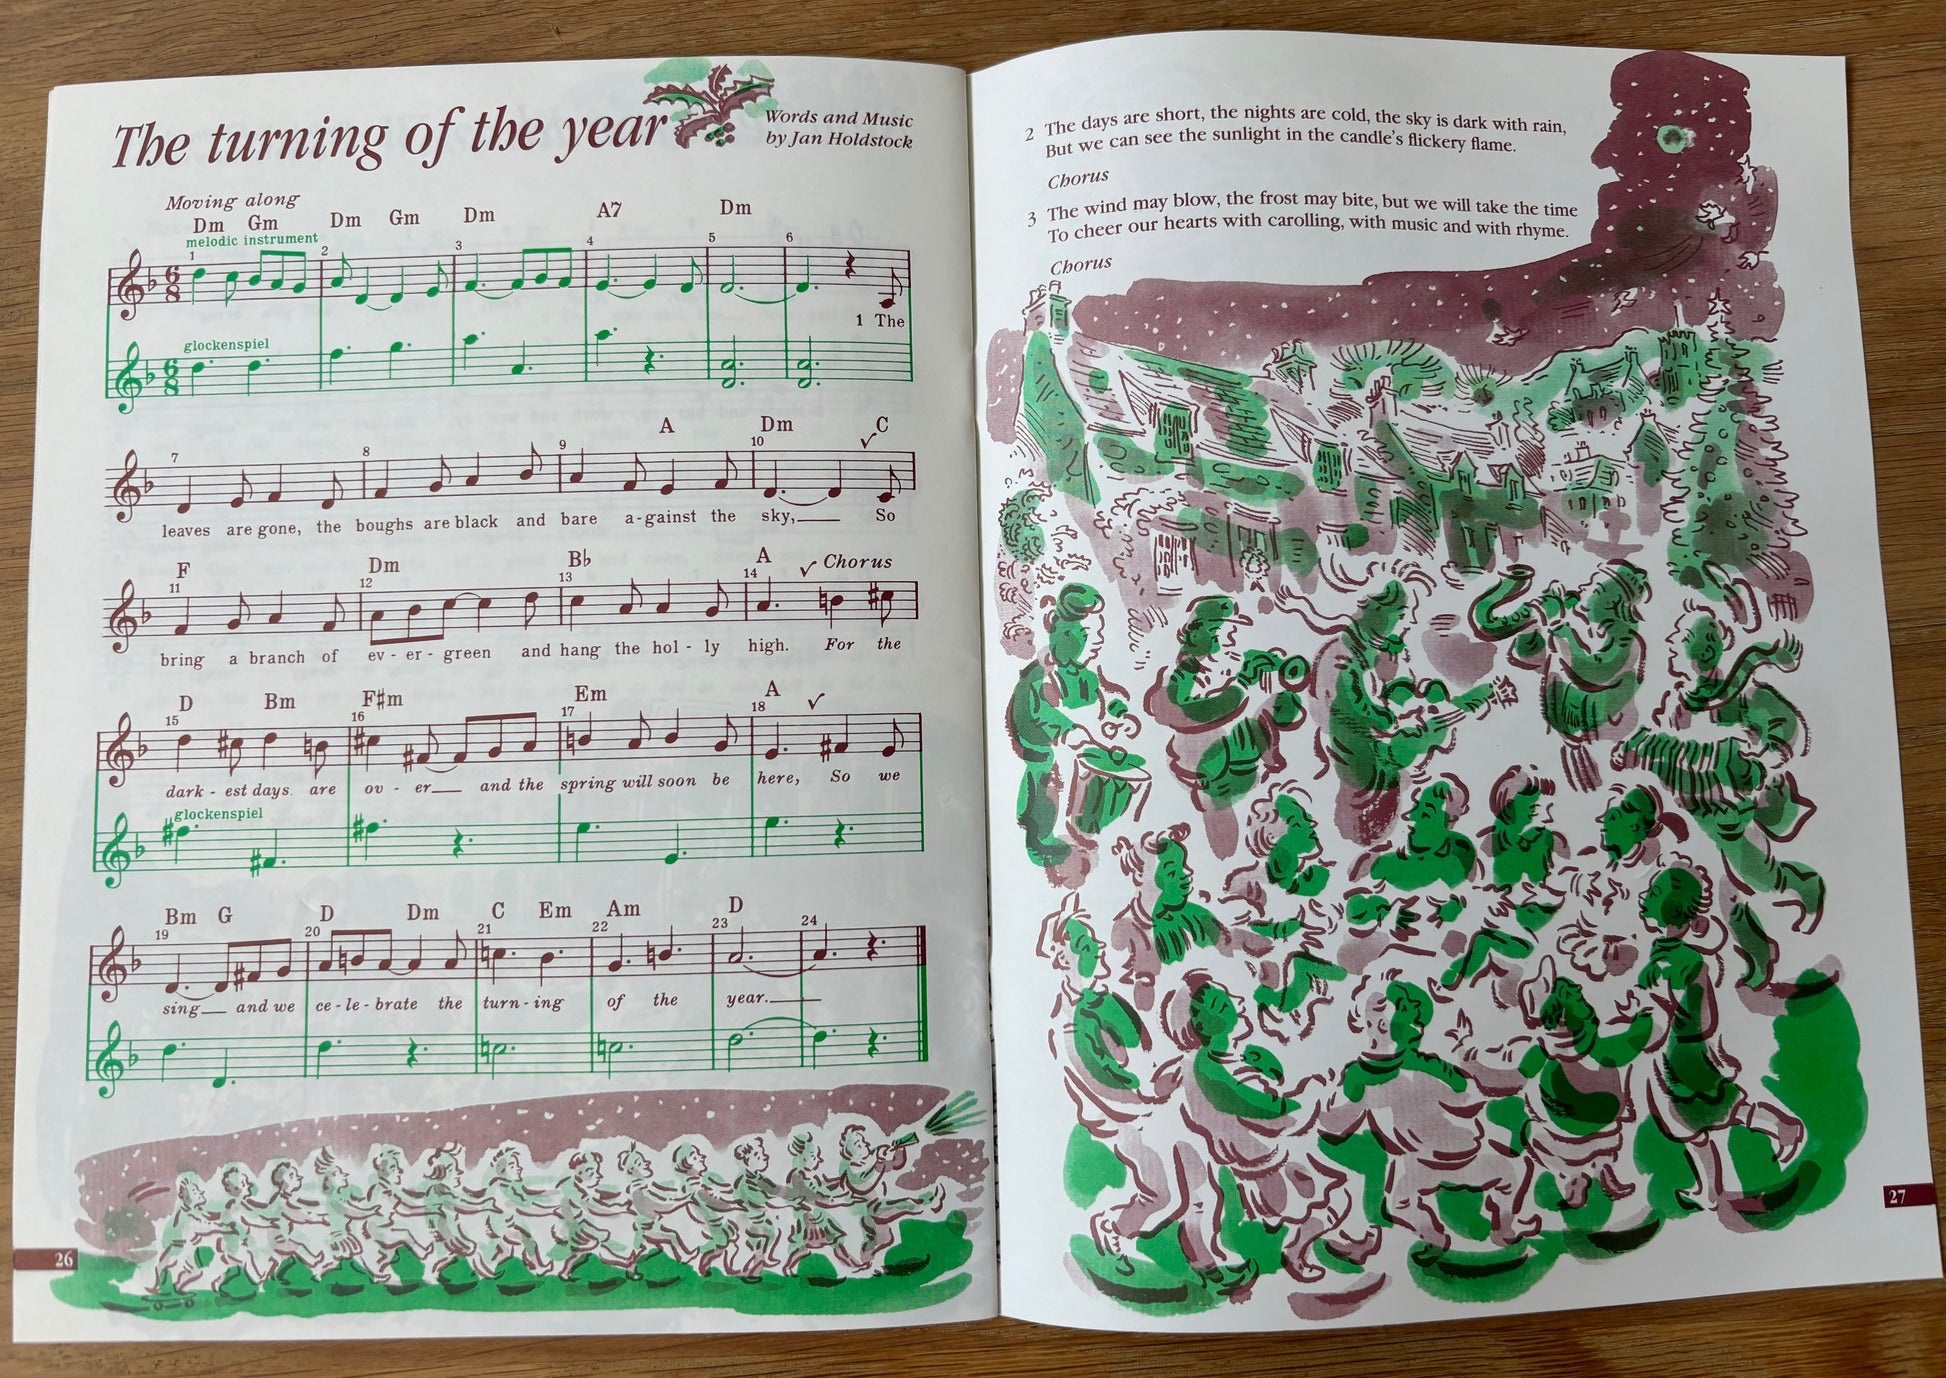 The turning of the year
Words and Music
by Jan Holdstock
Moving along
Dm Gm Dm Gm Dm A7 Dm
melodic instrument
1 2 3 4 5 6
6
8
1 The
glockenspiel
6
8
A Dm C
7 8 9 10
leaves are gone, the boughs are black and bare a-gainst the sky, So
F Dm B♭ A Chorus
11 12 13 14
bring a branch of ev - er - green and hang the hol - ly high. For the
D Bm F#m Em A
15 16 17 18
dark - est days are ov - er and the spring will soon be here, So we
glockenspiel
Bm G D Dm C Em Am D
19 20 21 22 23 24
sing and we ce - le - brate the turn - ing of the year.
26
2 The days are short, the nights are cold, the sky is dark with rain,
But we can see the sunlight in the candle's flickery flame.
Chorus
3 The wind may blow, the frost may bite, but we will take the time
To cheer our hearts with carolling, with music and with rhyme.
Chorus
27